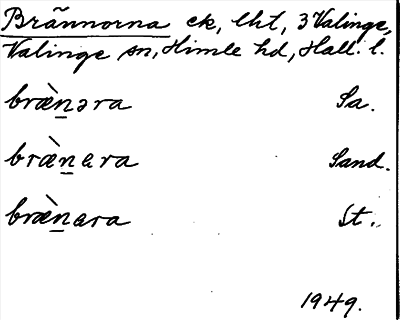 Brännorna ek, lht, 3 Valinge,
Valinge sn, Himle hd, Hall. l.
bræ̀n̲əra Sa.
bræ̀n̲ara Sand.
bræ̀n̲ara St.
1949.